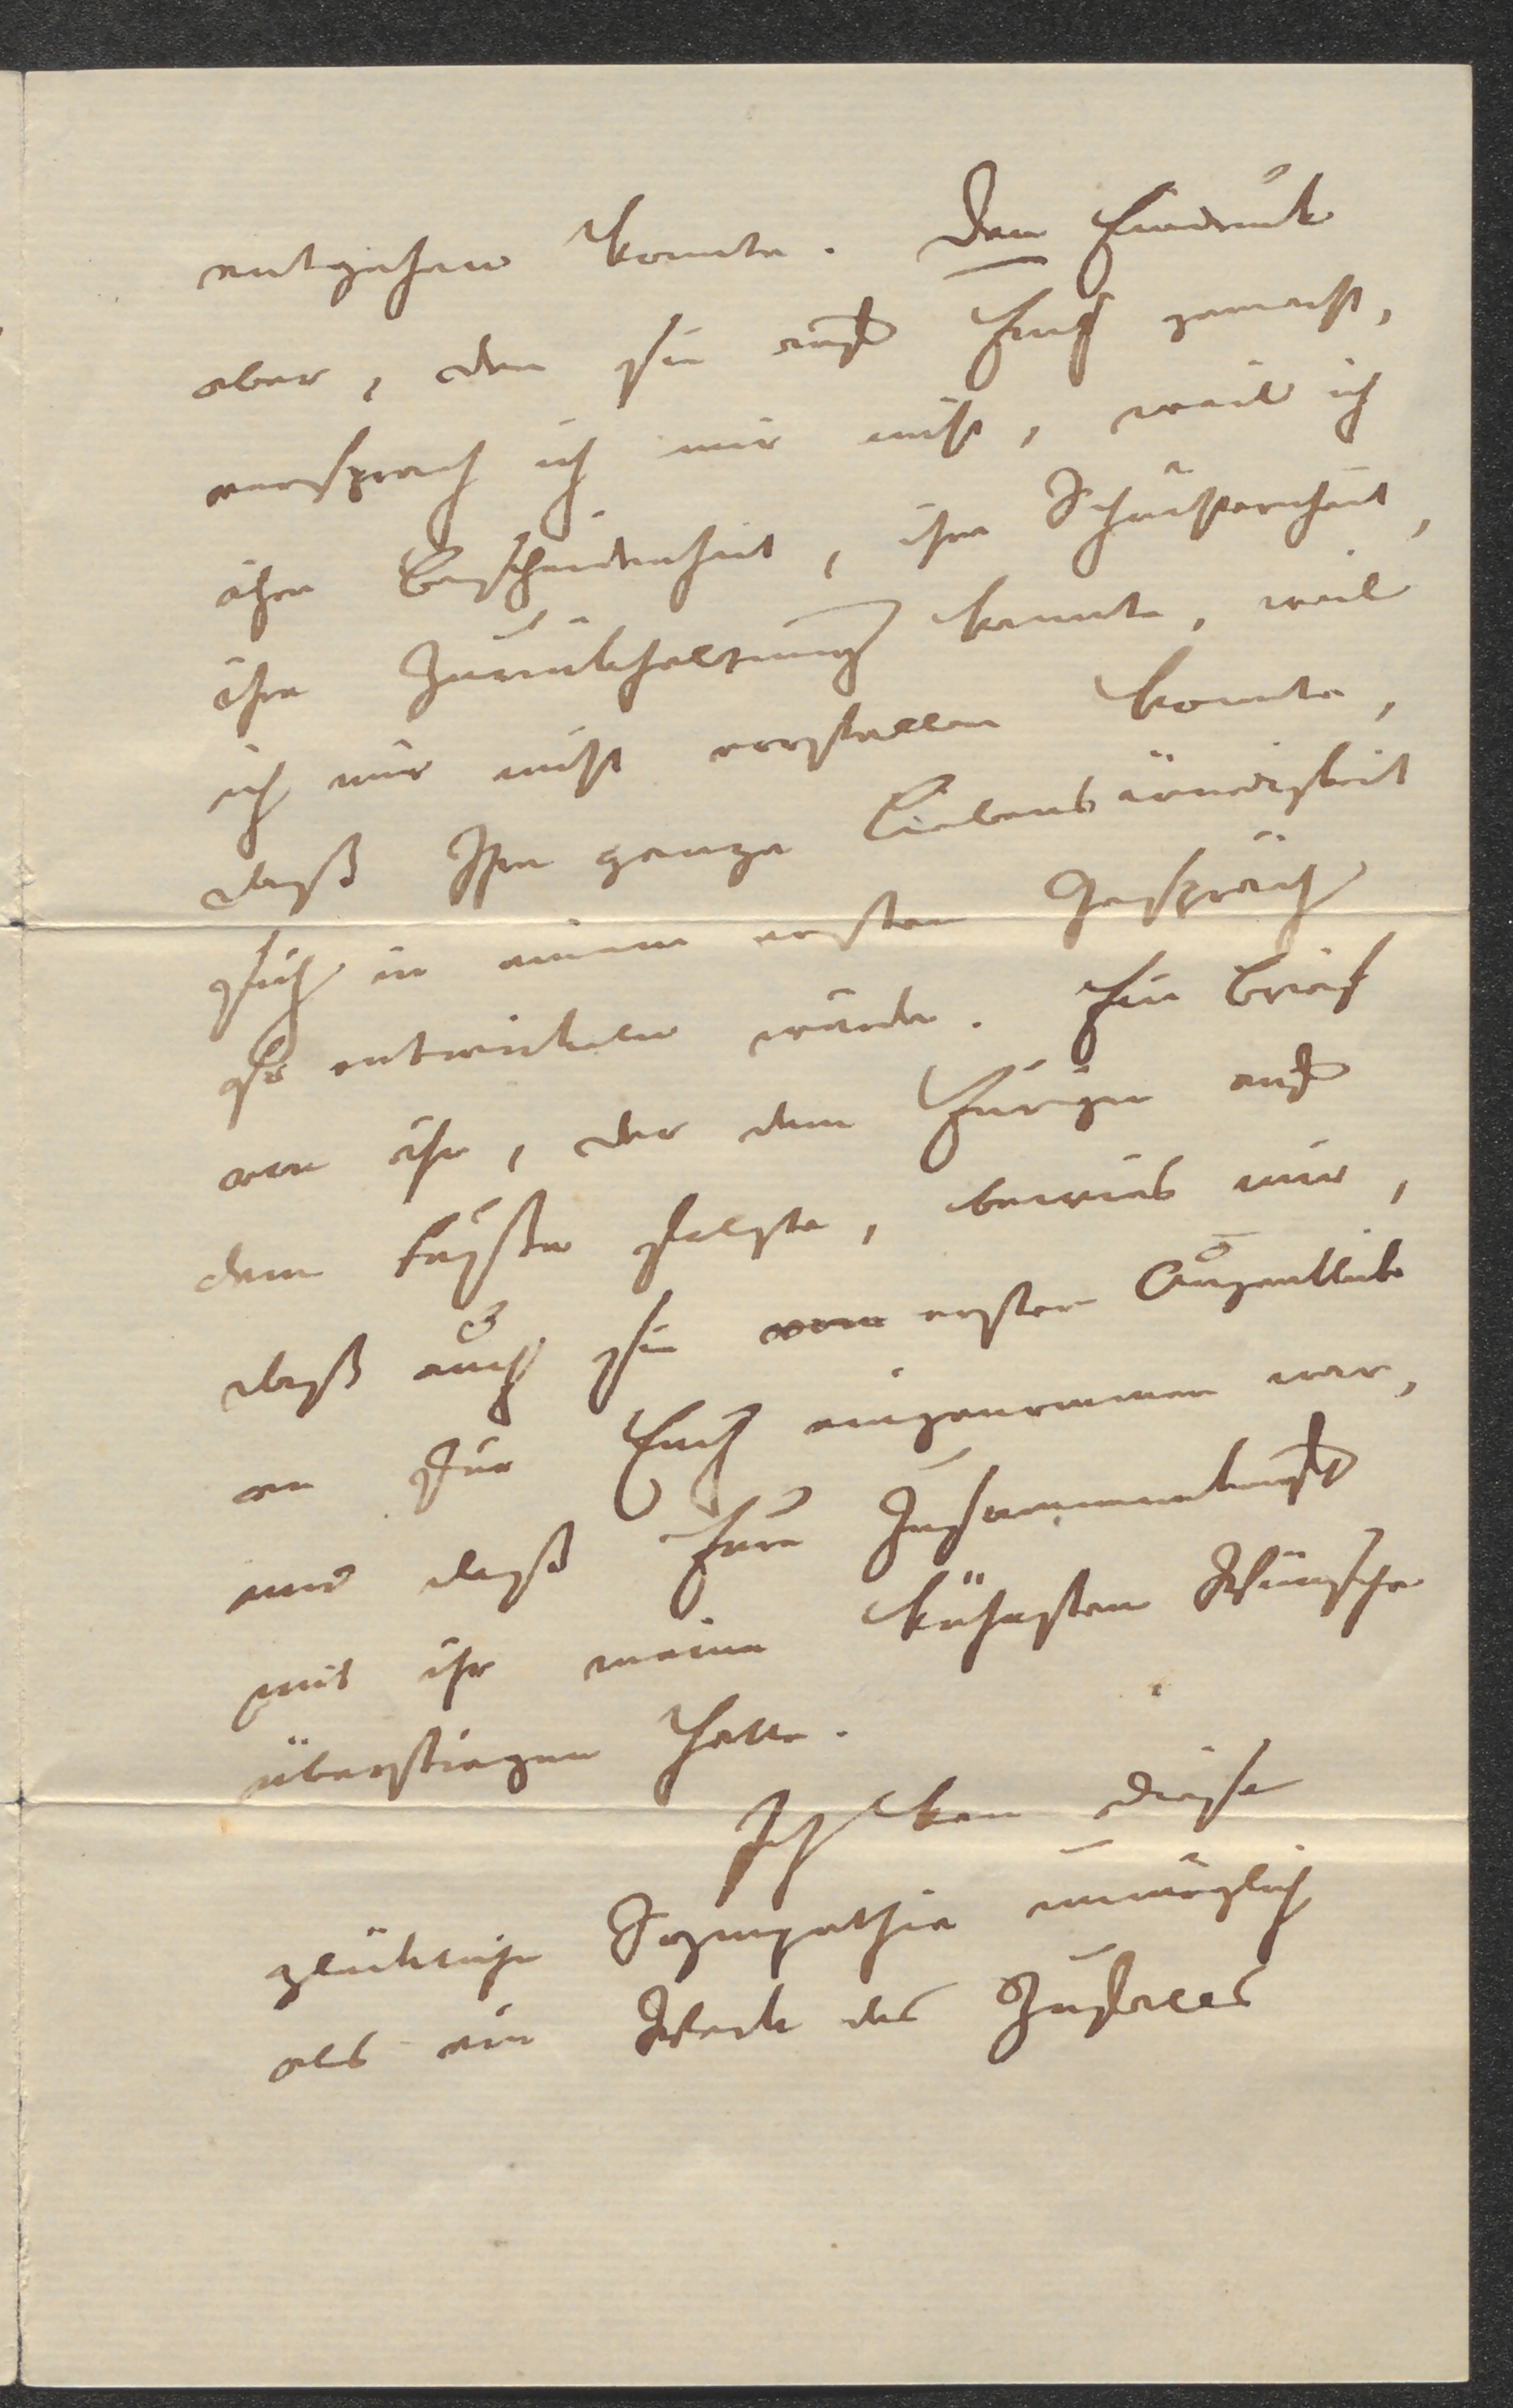 entgehen konnte. Den Eindruck
aber, den sie auf Euch gemacht,
versprach ich mir nicht, weil ich
ihre Bescheidenheit, ihre Schüchternheit,
ihre Zurückhaltung kannte, weil
ich mir nicht vorstellen konnte,
daß Ihre ganze Liebenswürdigkeit
sich in einem ersten Gespräch
so entwickeln würde. Ein Brief
von ihr, der dem Eurigen auf
dem Fuße folgte, bewies mir,
daß auch sie vom ersten Augenblick
an für Euch eingenommen war,
und daß Eure Zusammenkunft
mit ihr meine kühnsten Wünsche
überstiegen hatte.
Ich kan diese
glückliche Sympathie unmöglich
als ein Werk des Zufalles